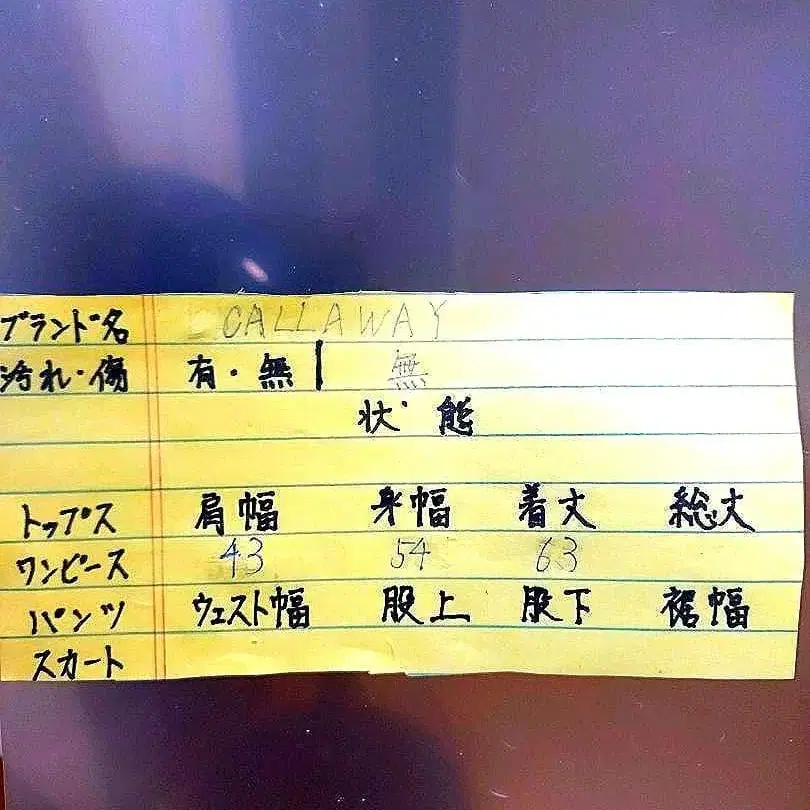 ブランド名 CALLAWAY
汚れ・傷 有・無 | 無
状態
トップス 肩幅 身幅 着丈 総丈
ワンピース 43 54 63
パンツ ウェスト幅 股上 股下 裾幅
スカート